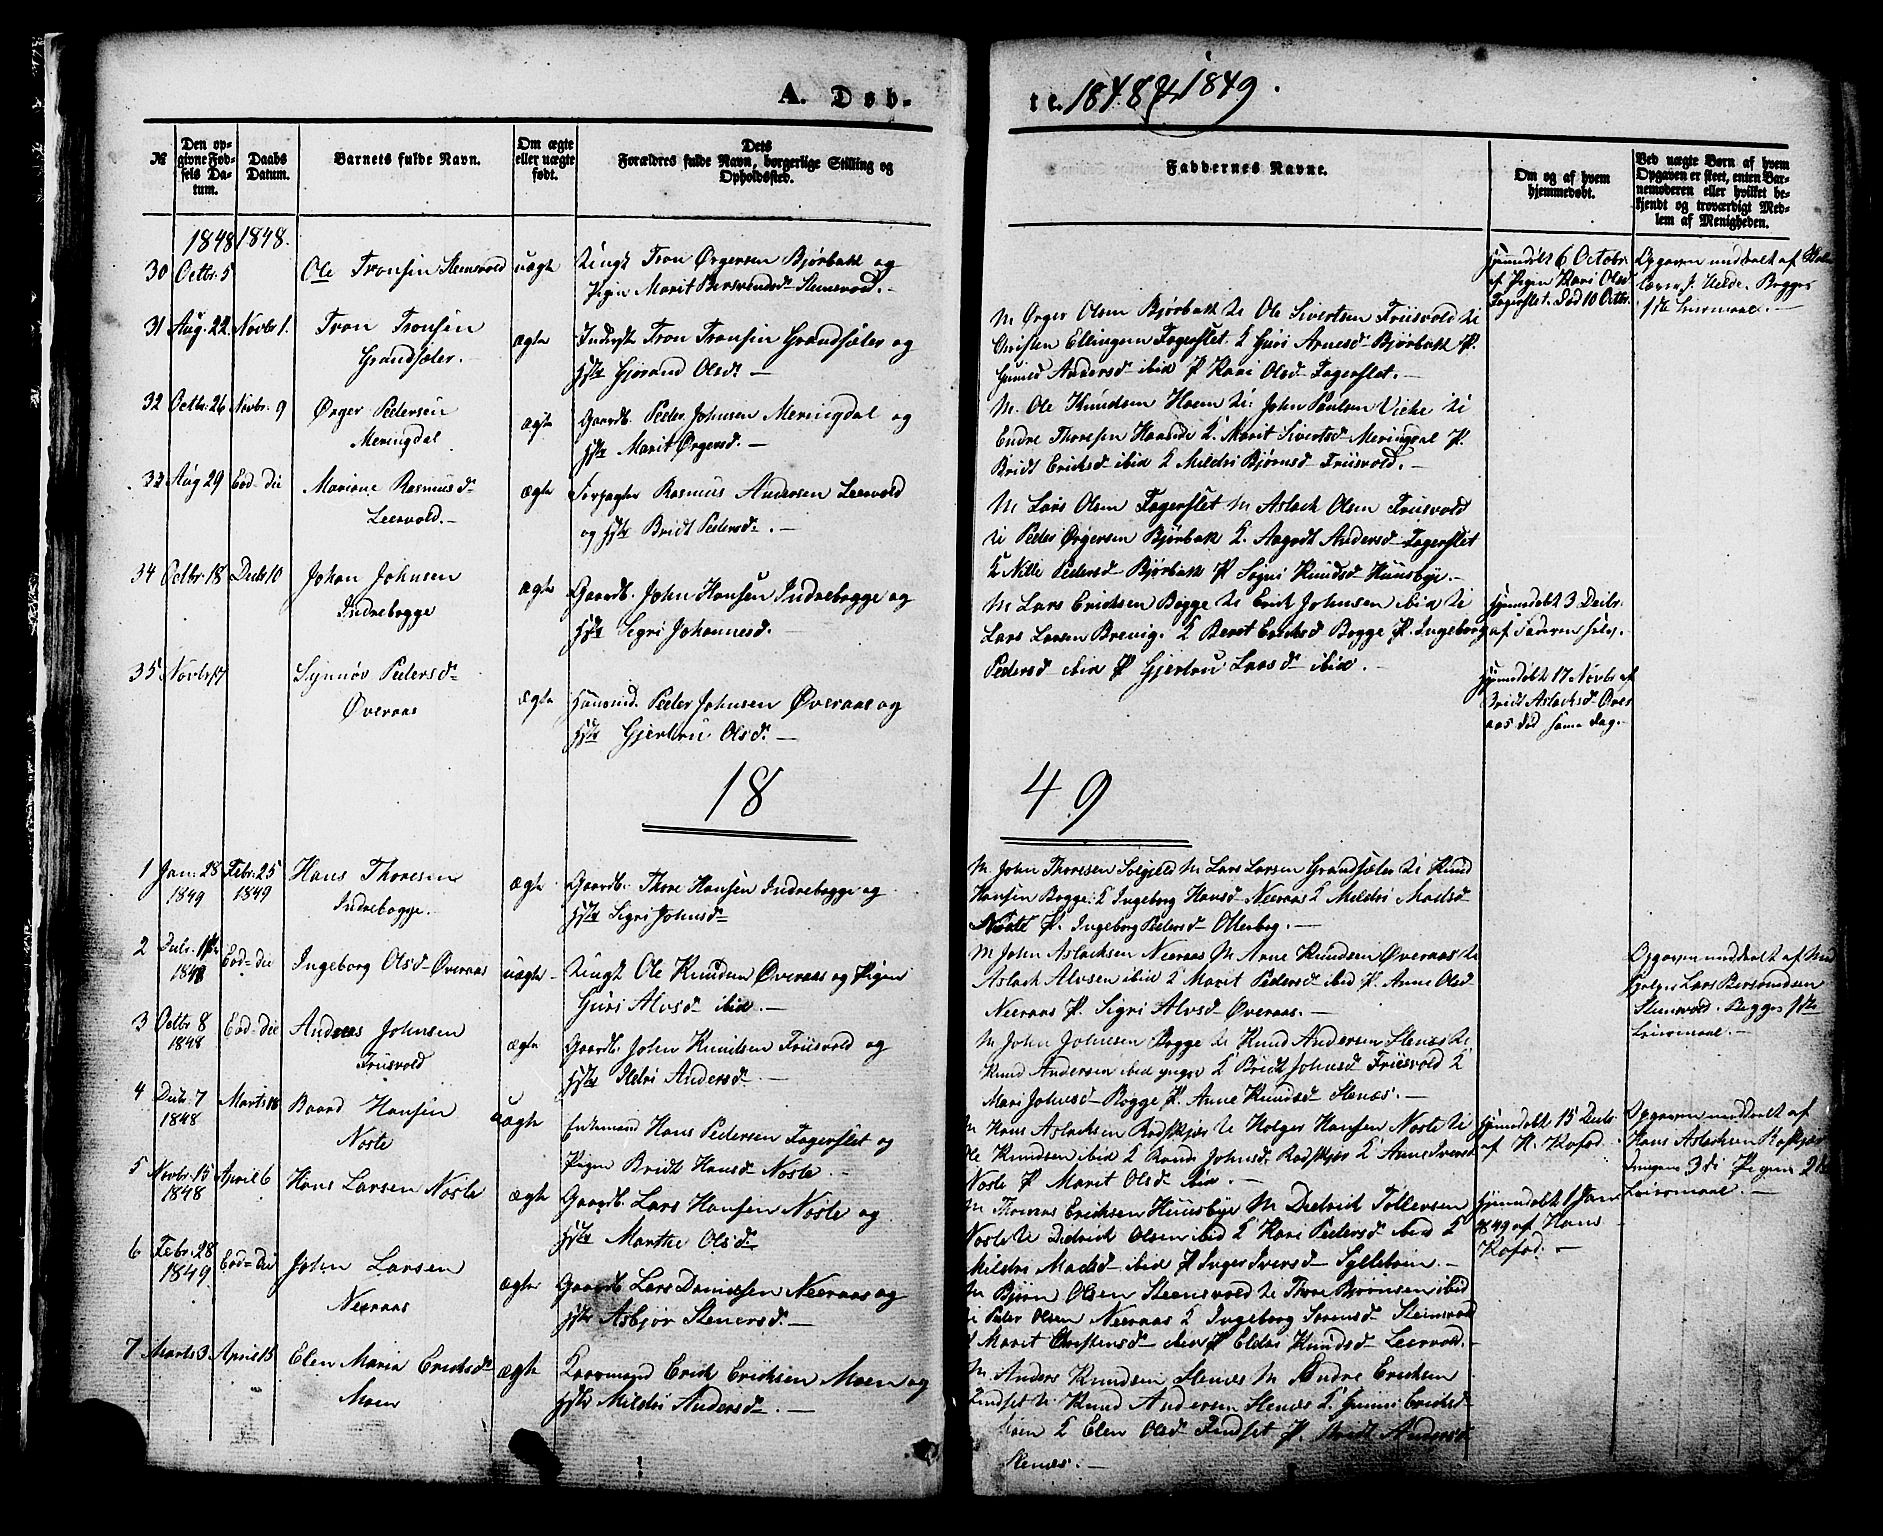 A. Døb-
te. 1848 & 1849.
№
Den opgivne Fødsels Datum.
Daabs Datum.
Barnets fulde Navn.
Om ægte eller uægte født.
Dets Forældres fulde Navn, borgerlige Stilling og Opholdssted.
Faddernes Navne.
Om og af hvem hjemmedøbt.
Ved uægte Børn af hvem Opgaven er skeet, enten Barnemoderen eller hvilket bekjendt og troværdigt Medlem af Menigheden.
1848 1848.
30 Octbr. 5 Ole Tronsen Stensvold uægte Ungk Tron Ørgersen Bjørbak og
Pigen Marit Bersvendsd. Stensvold. —
Hjemmedøbt 6 Octobr.
af Pigen Kari Olsd
Fagerslet. Død 10 Octbr.
Opgaven meddeelt af
Begges
1ste Leiermaal. —
31 Aug. 22 Novbr 1. Tron Tronsen
Grandsæter. —
ægte Inderst Tron Tronsen Grandsæter og
Hstr Gjørand Olsd. —
M Ørger Olsen Bjørbak U Ole Sivertsen Friisvold U
Christen Ellingsen Fagerslet. K Guri Arnesd Bjørbak P.
Andersd ibid P Kari Olsd Fagerslet. —
32 Octbr. 26 Novbr. 9 Ørger Pedersen
Meringdal
ægte Gaardb. Peder Johnsen Meringdal og
Hstr Marit Ørgersd. —
M. Ole Knudsen Hoem U. John Paulsen Vike U
Endre Thoresen K. Marit Sivertsd Meringdal P.
Bridt Ericksd ibid K Mildri Bjørnsd Friisvold. —
33 Aug 29 Eod-die Mariane Rasmusd
Leervold. —
ægte Forpagter Rasmus Andersen Leervold
og Hstr Bridt Pedersd. —
M Lars Olsen Fagerslet M Aslack Olsen Friisvold
U Peder Ørgersen Bjørbak K. Aagodt Andersd Fagerslet
K Nille Pedersd Bjørbak P Sogni Knudsd Huusbye. —
34 Octbr. 18 Decbr 10 Johan Johnsen
Indrebogge
ægte Gaardb. John Hansen Indrebogge og
Hstr Sigri Johannesd. —
M Lars Ericksen Bogge U Erick Johnsen ibid U
Lars Larsen Brevig. K Beret Ericksd Bogge P. Ingeborg
Pedersd ibid P Gjertru Larsd ibid. —
Hjemmedøbt 3 Decbr.
af Faderen selv. —
35 Novbr 17 Synnøv Pedersd
Øveraas
ægte Huusmd. Peder Johnsen Øveraas og
Hstr Gjertru Olsd. —
Hjemmedøbt 17 Novbr af
Bridt Aslacksd Øver
aas død samme dag. —
18 49
1 Jan. 28 1849 Febr. 25 1849 Hans Thoresen
Indrebogge.
ægte Gaardb. Thore Hansen Indrebogge og
Hstr Sigri Johnsd
M John Thoresen Solgilde M Lars Larsen Grandsæter U Knud
Hansen Bogge. K Ingeborg Hansd Neeraas K Mildri Madsd
Noste P. Ingeborg Pedersd —
2 Decbr. 1848 Eod-die Ingeborg Olsd Øveraas uægte Ungk Ole Knudsen Øveraas og Pigen
Guri Alvsd ibid. —
M John Aslacksen Neeraas M Arne Knudsen Øveraas U
Aslack Alvsen ibid K Marit Pedersd ibid P. Anne Olsd
Neeraas P. Sigri Alvsd Øveraas. —
Opgaven meddeelt af
Lars Bersvendsen
Stensvold. Begges 1ste
Leiermaal. —
3 Octbr 8 1848 Eod-die Andreas Johnsen
Friisvold
ægte Gaardb. John Knudsen Friisvold og
Hstr Ildri Andersd. —
M John Johnsen Bogge U Knud Andersen Stenæs U
Knud Andersen ibid yngre K Bridt Johnsd Friisvold K
Mari Johnsd Bogge P. Anne Knudsd Stenæs. —
4 Decbr. 7 1848 Marts 18 Baard Hansen
Noste
uægte Enkemand Hans Pedersen Fagerslet og
Pigen Bridt Hansd Noste. —
M Hans Aslacksen Rødskjær U Holger Hansen Noste U
Ole Knudsen ibid K Rande Johnsd. Rødskjær K Anne Iversd
Noste P Marit Olsd ibid. —
Hjemmedøbt 15 Decbr
af H. Kofod. —
Opgaven meddeelt af
Hans Aslacksen
3die Pigens 2det
Leiermaal. —
5 Novbr. 15 1848 April 6 Hans Larsen Noste ægte Gaardb. Lars Hansen Noste og
Hstr Marthe Olsd
M Thomas Ericksen Huusbye M Diedrick Tollevsen
Noste U Didrick Olsen ibid K Kari Pedersd ibid K
Mildri Madsd ibid P Inger Iversd Syltebøen. —
Hjemmedøbt 1 Jan.
1849 af Hans
Kofod. —
6 Febr. 28 1849 Eod-die John Larsen
Neeraas
ægte Gaardb. Lars Danielsen Neeraas og
Hstr Asbjør Stenersd. —
M Bjørn Olsen Steensvold U Thore Bjørnsen ibid
U Peder Olsen Neeraas K Ingeborg Sørensd Stensvold
K Marit Christensd ibid P Eldri Knudsd Leervold. —
7 Marts 3 April 15 Elen Maria Ericksd
Moen
ægte Erick Ericksen Moen og
Hstr Mildri Andersd. —
M Anders Knudsen Stenæs M Endre Ericksen
Lindset U Knud Andersen Stenæs K. Gunni Ericksd
Moen K Elen Olsd Lindset P. Bridt Andersd
Stenæs. —